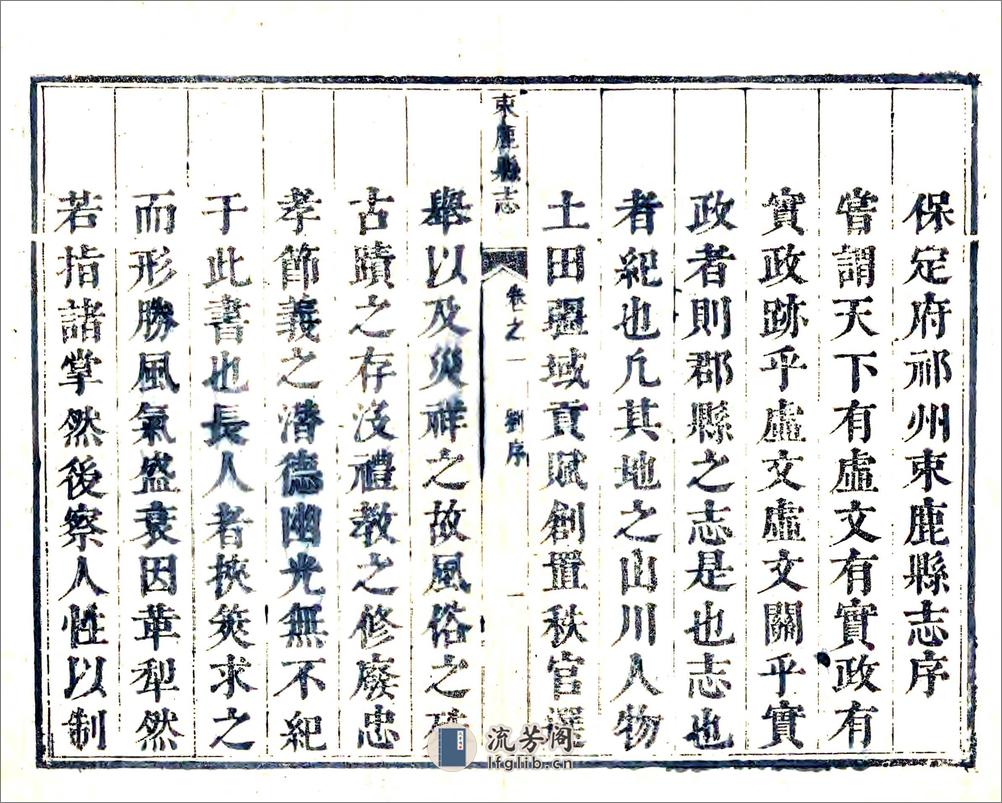 保定府祁州束鹿縣志序
嘗謂天下有虛文有實政有
實政跡乎虛文虛文關乎實
政者則郡縣之志是也志也
者紀也凡其地之山川人物
土田疆域貢賦創置秩官選
東鹿縣志 卷之一 劉序 一
舉以及災祥之故風俗之
古蹟之存没禮教之修廢忠
孝節義之潛德幽光無不紀
于此書也長人者挾筴求之
而形勝風氣盛衰因革犁然
若指諸掌然後察人性以制
流芳阁
lfglib.cn